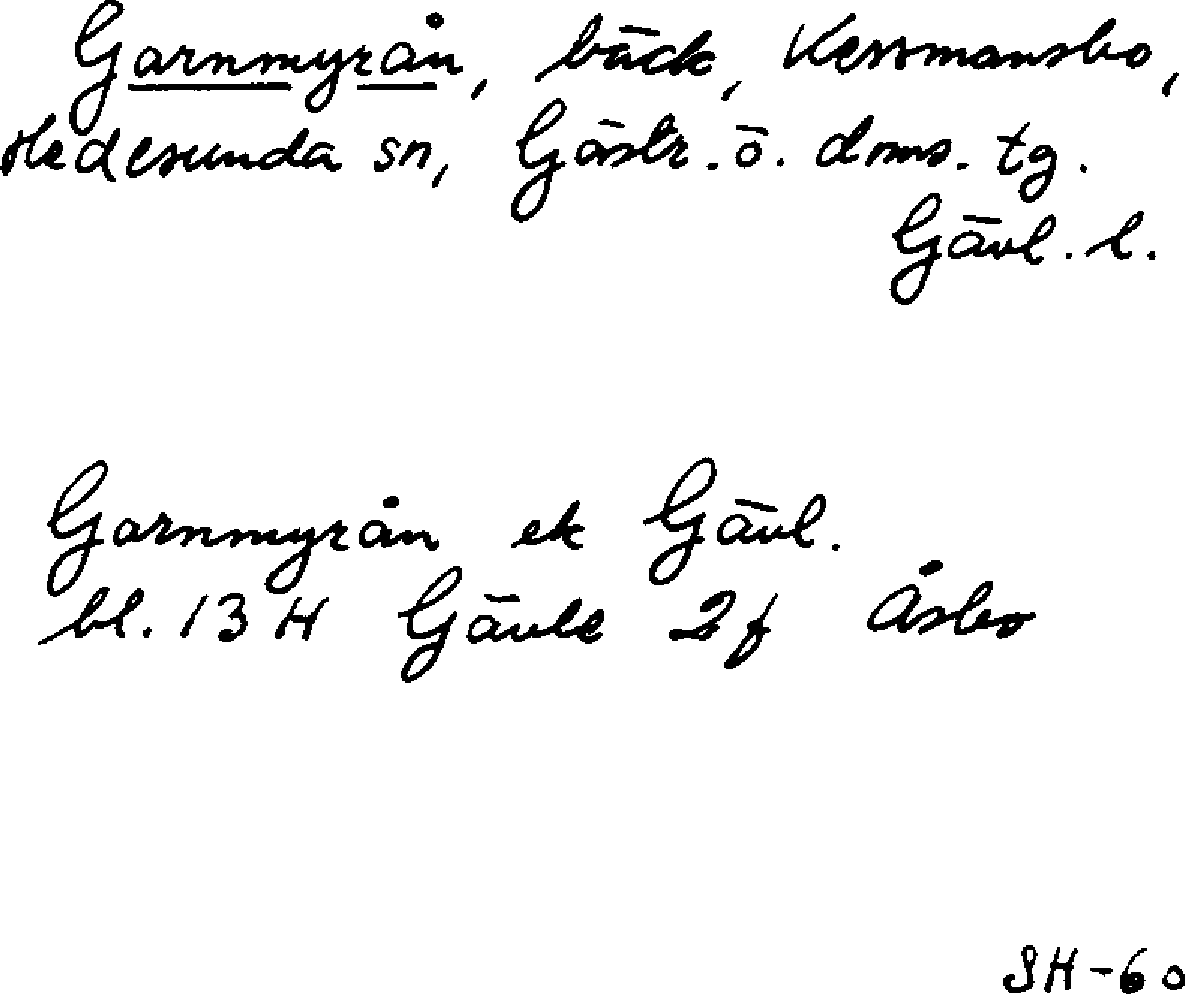 Garnmyrån, bäck, Kessmansbo,
Hedesunda sn, Gästr. ö. doms. tg.
Gävl. l.
Garnmyrån ek Gävl.
bl. 13 H Gävle 2f Åsbo
SH-60